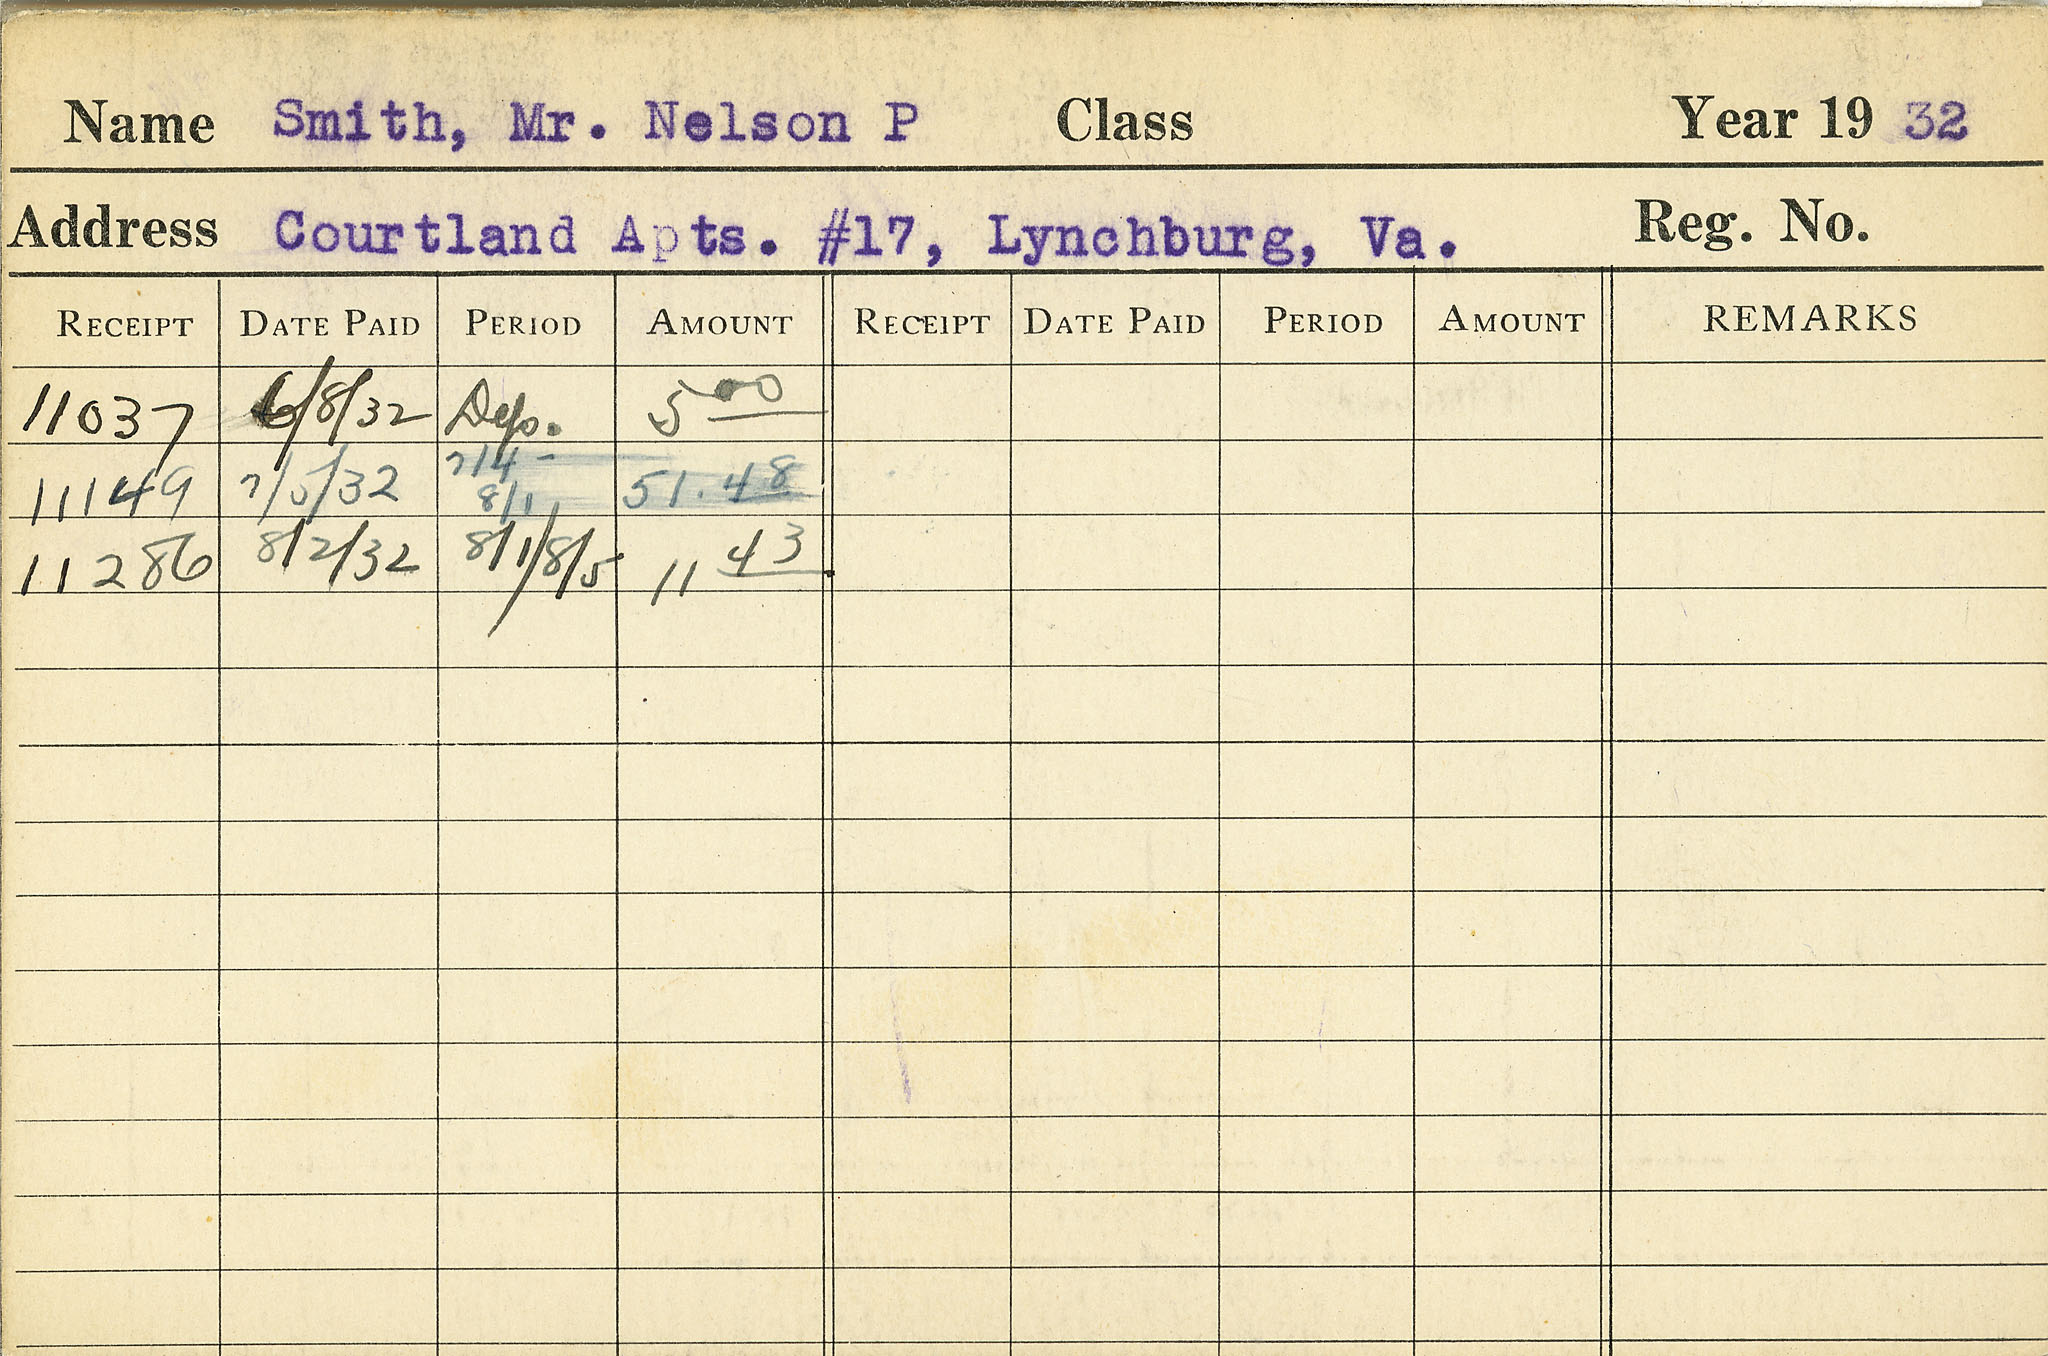 Name Smith, Mr. Nelson P Class Year 19 32
Address Courtland Apts. #17, Lynchburg, Va. Reg. No.
RECEIPT DATE PAID PERIOD AMOUNT RECEIPT DATE PAID PERIOD AMOUNT REMARKS
11037 6/8/32 Dep. 5 00
11149 7/5/32 7/4 - 8/1 51.48
11286 8/2/32 8/1/8/5 11 43